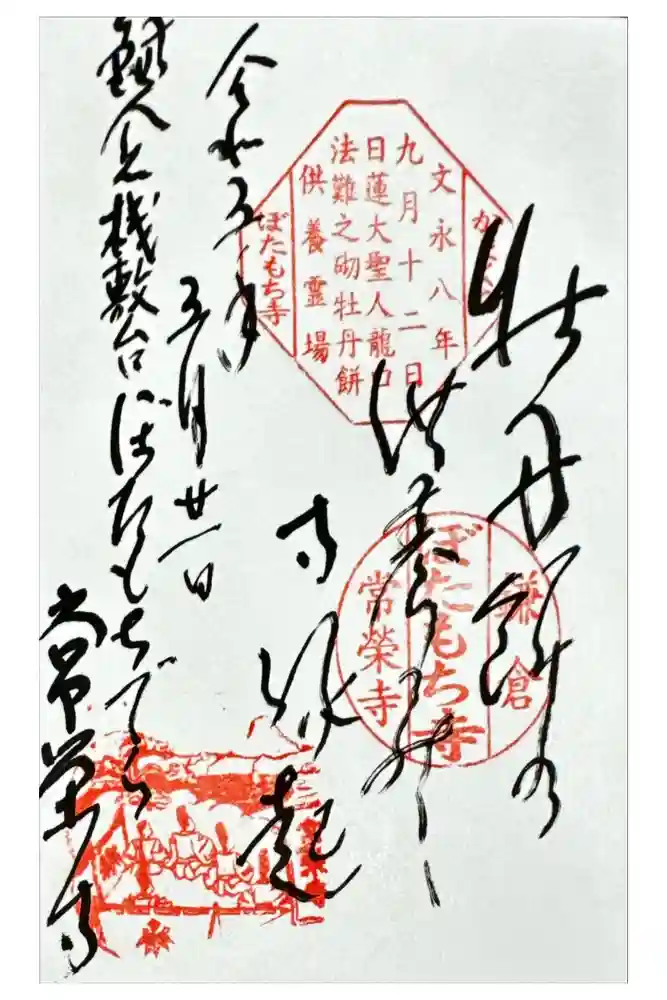 牡丹餅の
供養
寺縁起
令和三年
三月廿一日
鎌倉桟敷台ぼたもちでら
常栄寺
文永八年
九月十二日
日蓮大聖人龍口
法難之砌牡丹餅
供養霊場
ぼたもち寺
鎌倉
ぼたもち寺
常榮寺